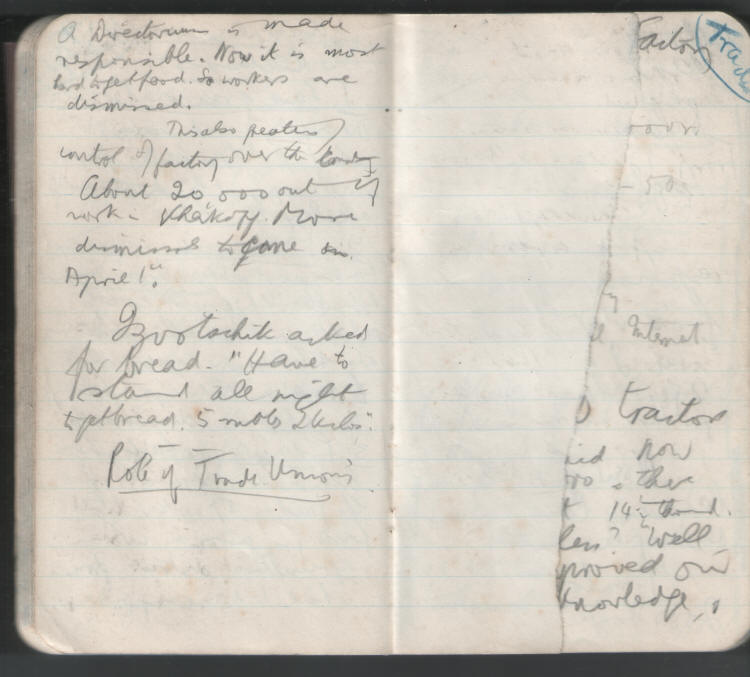 A Directorium is made
responsible. Now it is most
hard to get food. So workers are
dismissed.
This also greater
control of factory over the
About 20,000 out
work in Kharkov. More
dismissals to come on
April 1st.
Izvostschik asked
for bread. "Have to
stand all night
to get bread. 5 roubles 2 kilos".
Role of Trade Unions
Factory
Trac
50
Internat
tractors
now
ther
14½ thousand.
less? Well
proved our
knowledge,